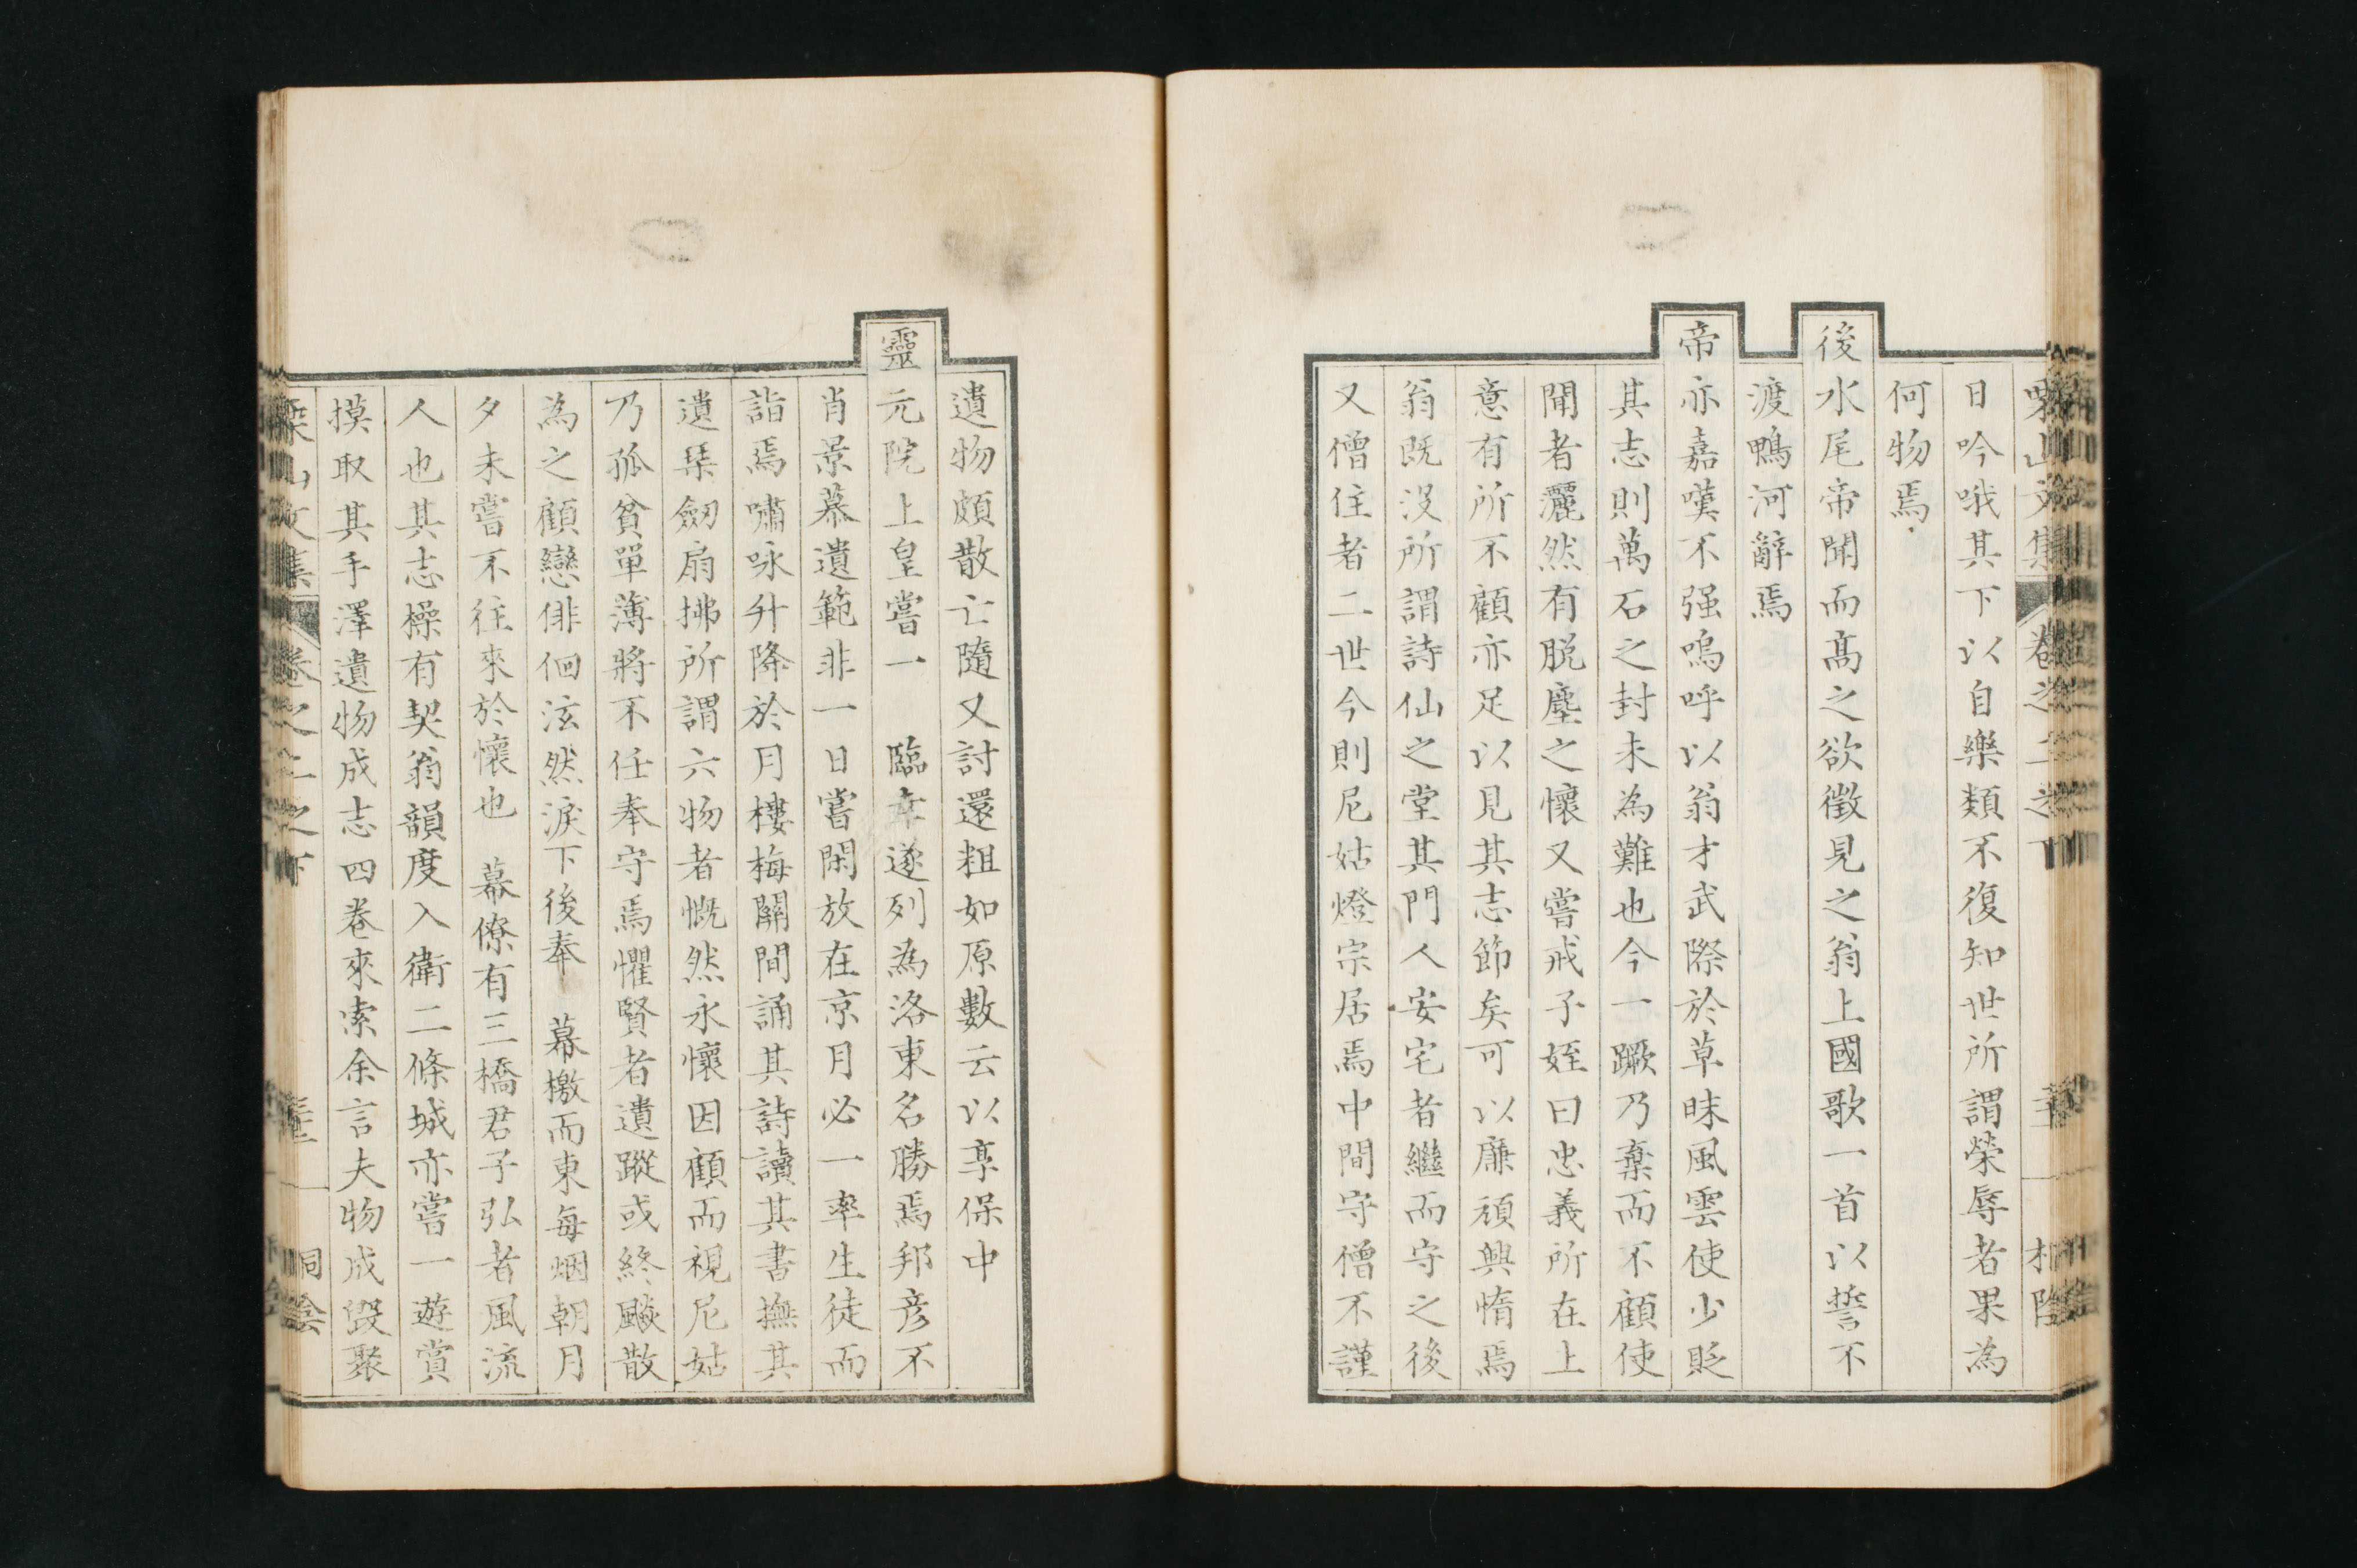 栗山文集 卷之二之下
日吟哦其下以自樂類不復知世所謂榮辱者果為
何物焉
後水尾帝聞而高之欲徵見之翁上國歌一首以誓不
渡鴨河辭焉
帝亦嘉嘆不强嗚呼以翁才武際於草昧風雲使少貶
其志則萬石之封未為難也今一蹶乃棄而不顧使
聞者灑然有脱塵之懷又嘗戒子姪曰忠義所在上
意有所不顧亦足以見其志節矣可以廉頑興惰焉
翁既没所謂詩仙之堂其門人安宅者繼而守之後
又僧住者二世今則尼姑燈宗居焉中間守僧不謹
遺物頗散亡隨又討還粗如原數云以享保中
靈元院上皇嘗一 臨幸遂列為洛東名勝焉邦彦不
肖景慕遺範非一日嘗閑放在京月必一率生徒而
詣焉嘯咏升降於月樓梅關間誦其詩讀其書撫其
遺琹劔扇拂所謂六物者慨然永懷因顧而視尼姑
乃孤貧單薄將不任奉守焉懼賢者遺蹤或終颷散
為之顧戀俳佪泫然淚下後奉 幕檄而東每烟朝月
夕未嘗不往來於懷也 幕僚有三橋君子弘者風流
人也其志操有契翁韻度入衛二條城亦嘗一遊賞
摸取其手澤遺物成志四卷來索余言夫物成毀聚
栗山文集 卷之二之下 桐陰